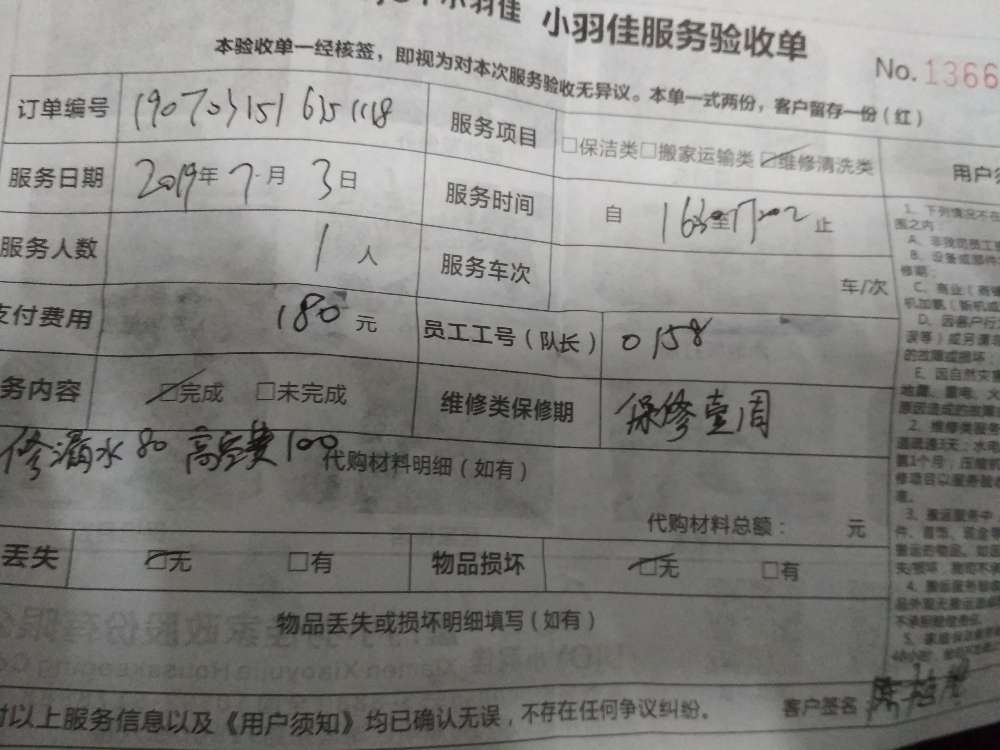 小羽佳 小羽佳服务验收单
No. 1366
本验收单一经核签，即视为对本次服务验收无异议。本单一式两份，客户留存一份（红）
订单编号 服务项目 □保洁类 □搬家运输类 ☑维修清洗类
服务日期 2019年7月3日 服务时间 自 1630至1700 止
服务人数 1 人 服务车次 车/次
支付费用 180 元 员工工号（队长） 0158
务内容 ☑完成 □未完成 维修类保修期 保修壹周
修漏水80 高空费100
代购材料明细（如有）
代购材料总额： 元
丢失 ☑无 □有 物品损坏 ☑无 □有
物品丢失或损坏明细填写（如有）
对以上服务信息以及《用户须知》均已确认无误，不存在任何争议纠纷。 客户签名
用户须
1、下列情况不在
围之内：
A、非我司员工
B、设备或部件
修期；
C、商业（商
机加氟（新机
D、因客户行
误等）或另
的故障或损坏；
E、因自然灾害
地震、雷电、火
原因造成的故障
2、维修类服务
道疏通3天；水电
修项目以服务验
3、搬运服务中
件、首饰、现金等